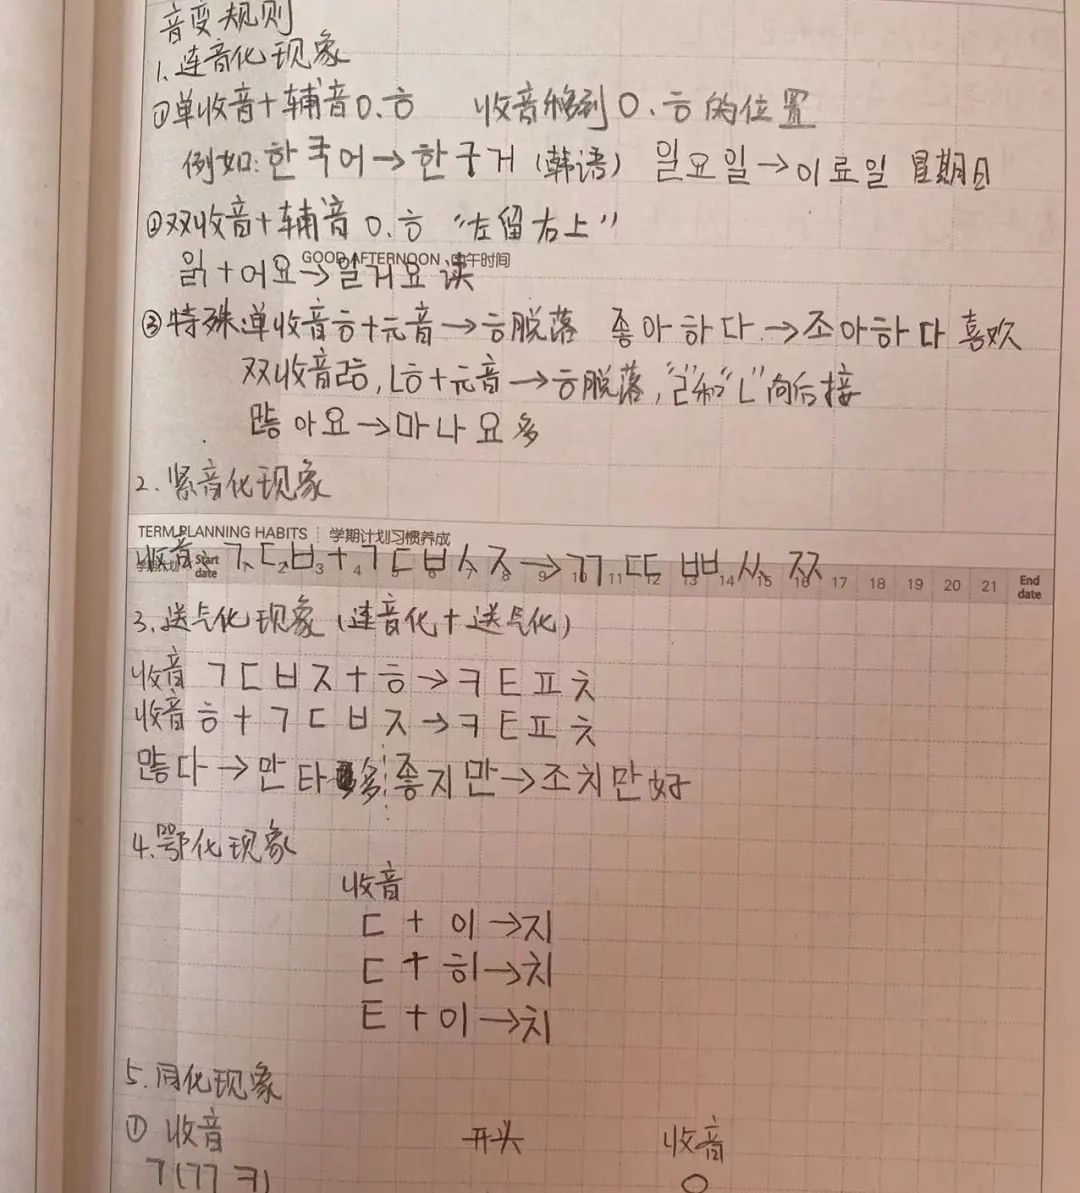 音变规则
1.连音化现象
①单收音+辅音ㅇ.ㅎ 收音移到ㅇ.ㅎ的位置
例如:한국어→한구거(韩语) 일요일→이료일 星期日
②双收音+辅音ㅇ.ㅎ "左留右上"
GOOD AFTERNOON 中午时间
읽+어요→일거요 读
③特殊单收音ㅎ+元音→ㅎ脱落 좋아하다→조아하다 喜欢
双收音ㅀ,ㄶ+元音→ㅎ脱落,"ㄹ"和"ㄴ"向后接
많아요→마나요 多
2.紧音化现象
TERM PLANNING HABITS 学期计划习惯养成
收音 ㄱㄷㅂ+ㄱㄷㅂㅅㅈ→ㄲㄸㅃㅆㅉ
学期计划 Start date 1 2 3 4 5 6 7 8 9 10 11 12 13 14 15 16 17 18 19 20 21 End date
3.送气化现象(连音化+送气化)
收音 ㄱㄷㅂㅈ+ㅎ→ㅋㅌㅍㅊ
收音ㅎ+ㄱㄷㅂㅈ→ㅋㅌㅍㅊ
많다→만타 多 좋지만→조치만 好
4.腭化现象
收音
ㄷ+이→지
ㄷ+히→치
ㅌ+이→치
5.同化现象
① 收音 开头 收音
ㄱ(ㄲㅋ) ㅇ